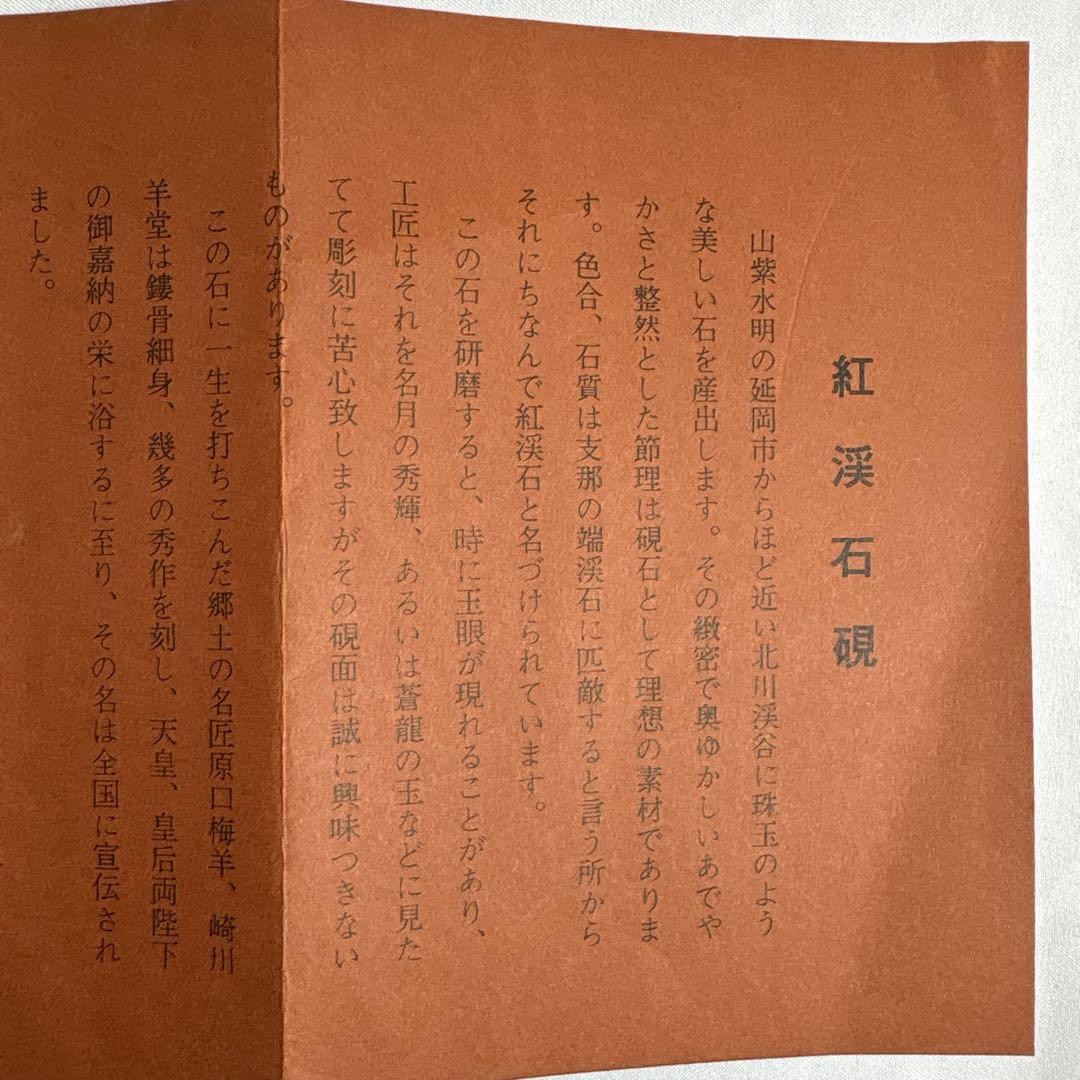 紅渓石硯
山紫水明の延岡市からほど近い北川渓谷に珠玉のよう
な美しい石を産出します。その緻密で奥ゆかしいあでや
かさと整然とした節理は硯石として理想の素材でありま
す。色合、石質は支那の端渓石に匹敵すると言う所から
それにちなんで紅渓石と名づけられています。
この石を研磨すると、時に玉眼が現れることがあり、
工匠はそれを名月の秀輝、あるいは蒼龍の玉などに見た
てて彫刻に苦心致しますがその硯面は誠に興味つきない
ものがあります。
この石に一生を打ちこんだ郷土の名匠原口梅羊、崎川
羊堂は鏤骨細身、幾多の秀作を刻し、天皇、皇后両陛下
の御嘉納の栄に浴するに至り、その名は全国に宣伝され
ました。